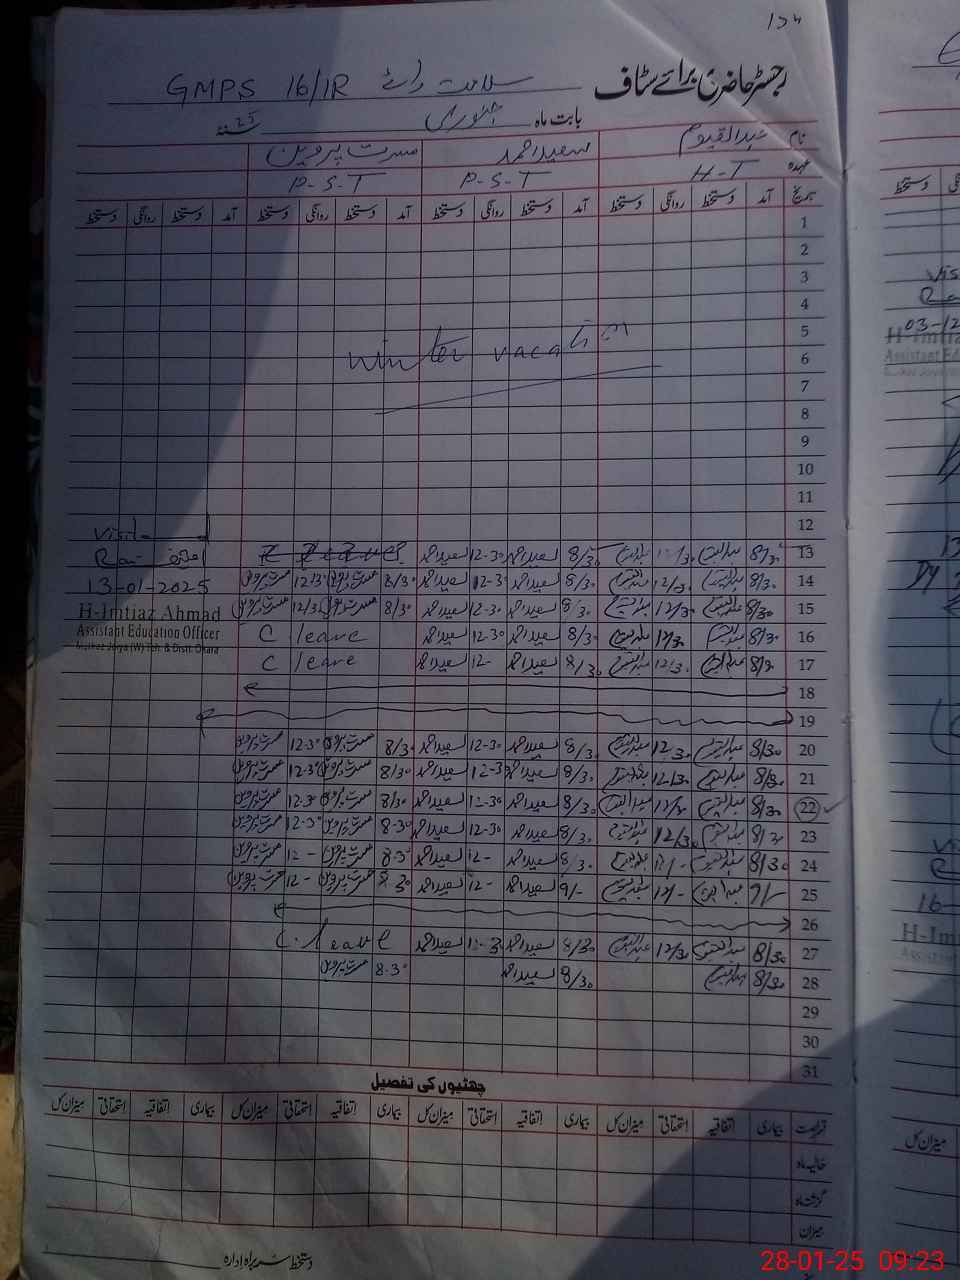 رجسٹر حاضری برائے سٹاف GMPS 16/1R سلامت رائے
بابت ماہ جنوری 25
نام عبدالقیوم سعید احمد مسرت پروین
عہدہ H-T P-S-T P-S-T
تاریخ آمد دستخط روانگی دستخط آمد دستخط روانگی دستخط آمد دستخط روانگی دستخط آمد دستخط روانگی دستخط
1
2
3
4
5
winter vacation
6
7
8
9
10
11
12
Visit
13-01-2025
H-Imtiaz Ahmad
Assistant Education Officer
13 8/30 عبدالقیوم 12/30 عبدالقیوم 8/30 سعید احمد 12-30 سعید احمد
14 8/30 عبدالقیوم 12/30 عبدالقیوم 8/30 سعید احمد 12-30 سعید احمد 8/30 مسرت پروین 12/30 مسرت پروین
15 8/30 عبدالقیوم 12/30 عبدالقیوم 8/30 سعید احمد 12-30 سعید احمد 8/30 مسرت پروین 12/30 مسرت پروین
16 8/30 عبدالقیوم 12/30 عبدالقیوم 8/30 سعید احمد 12-30 سعید احمد C leave
17 8/30 عبدالقیوم 12/30 عبدالقیوم 8/30 سعید احمد 12- سعید احمد C leave
18
19
20 8/30 عبدالقیوم 12/30 عبدالقیوم 8/30 سعید احمد 12-30 سعید احمد 8/30 مسرت پروین 12-30 مسرت پروین
21 8/30 عبدالقیوم 12/30 عبدالقیوم 8/30 سعید احمد 12-30 سعید احمد 8/30 مسرت پروین 12-30 مسرت پروین
22 8/30 عبدالقیوم 12/30 عبدالقیوم 8/30 سعید احمد 12-30 سعید احمد 8/30 مسرت پروین 12-30 مسرت پروین
23 8/30 عبدالقیوم 12/30 عبدالقیوم 8/30 سعید احمد 12-30 سعید احمد 8-30 مسرت پروین 12-30 مسرت پروین
24 8/30 عبدالقیوم 12/- عبدالقیوم 8/30 سعید احمد 12- سعید احمد 8-30 مسرت پروین 12- مسرت پروین
25 9/- عبدالقیوم 12/- عبدالقیوم 9/- سعید احمد 12- سعید احمد 8-30 مسرت پروین 12- مسرت پروین
26
27 8/30 عبدالقیوم 12/30 عبدالقیوم 8/30 سعید احمد 12-3 سعید احمد C. leave
28 8/30 عبدالقیوم 8/30 سعید احمد 8-30 مسرت پروین
29
30
31
چھٹیوں کی تفصیل
بیماری اتفاقیہ استحقاقی میزان کل بیماری اتفاقیہ استحقاقی میزان کل بیماری اتفاقیہ استحقاقی میزان کل بیماری اتفاقیہ استحقاقی میزان کل
حالیہ ماہ
گزشتہ ماہ
میزان
دستخط سربراہ ادارہ
28-01-25 09:23